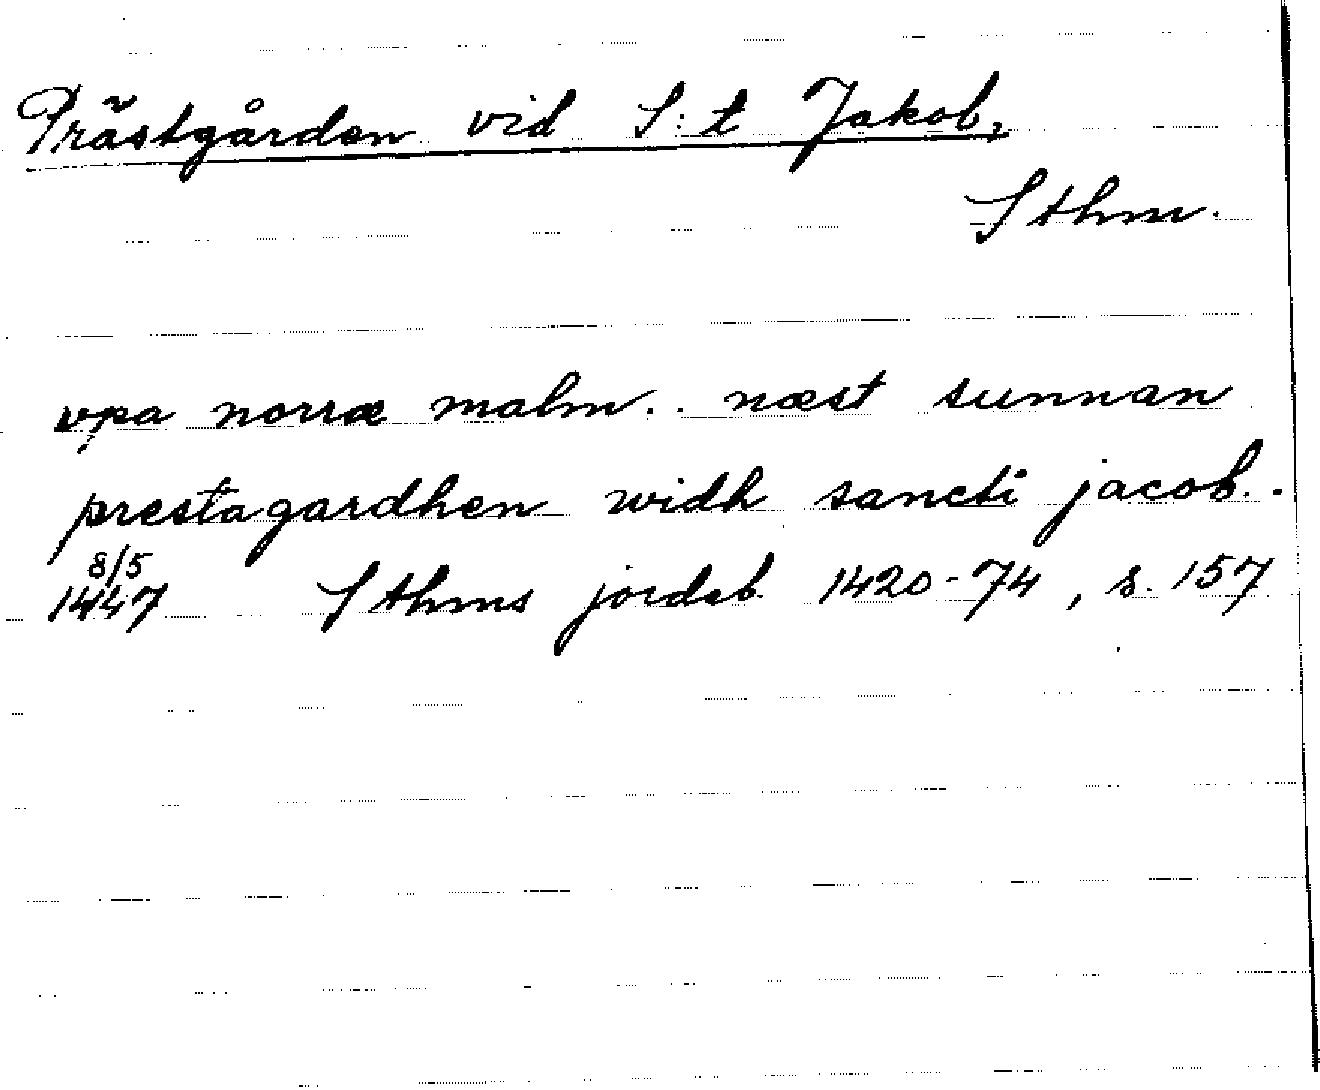 Prästgården vid S:t Jakob,
Sthm.
vpa norræ malm.. næst sunnan
prestagardhen widh sancti jacob..
8/5
1447 Sthms jordeb. 1420-74, s. 157